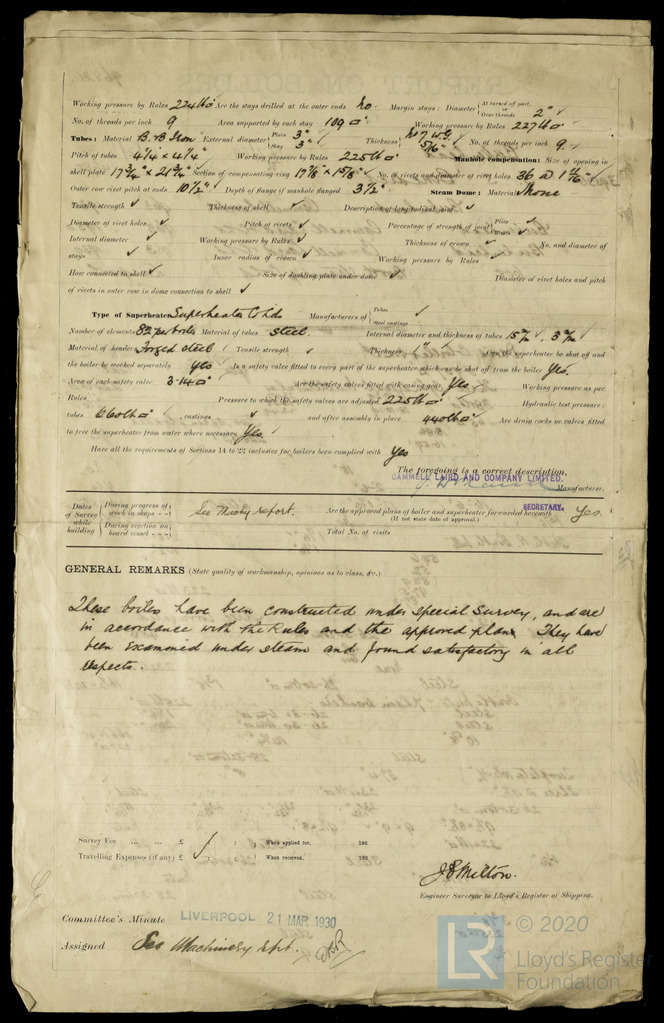 Working pressure by Rules 224 lb □" Are the stays drilled at the outer ends No. Margin stays: Diameter { At turned off part, or Over threads 2" ✓
No. of threads per inch 9 Area supported by each stay 109 □" Working pressure by Rules 227 lb □"
Tubes: Material B.B Iron External diameter { Plain 3" Stay 3" Thickness { No 7 W.G. 5/16" ✓ No. of threads per inch 9 ✓
Pitch of tubes 4 1/4 x 4 1/4" Working pressure by Rules 225 lb □" Manhole compensation: Size of opening in
shell plate 17 3/4" x 21 3/4" Section of compensating ring No. of rivets and diameter of rivet holes 36 @ 1 1/16" ✓
Outer row rivet pitch at ends 10 1/2" ✓ Depth of flange if manhole flanged 3 1/2" Steam Dome: Material None
Tensile strength ✓ Thickness of shell ✓ Description of longitudinal joint ✓
Diameter of rivet holes ✓ Pitch of rivets ✓ Percentage of strength of joint { Plate ✓ Rivets ✓
Internal diameter ✓ Working pressure by Rules ✓ Thickness of crown ✓ No. and diameter of
stays ✓ Inner radius of crown ✓ Working pressure by Rules ✓
How connected to shell ✓ Size of doubling plate under dome ✓ Diameter of rivet holes and pitch
of rivets in outer row in dome connection to shell ✓
Type of Superheater Superheater Co Ld Manufacturers of { Tubes Steel castings ✓
Number of elements 82 per boiler Material of tubes Steel. Internal diameter and thickness of tubes
Material of header Forged steel ✓ Tensile strength ✓ Thickness Can the superheater be shut off and
the boiler be worked separately Yes Is a safety valve fitted to every part of the superheater which can be shut off from the boiler Yes.
Area of each safety valve 3.14 □" Are the safety valves fitted with easing gear Yes ✓ Working pressure as per
Rules Pressure to which the safety valves are adjusted 225 lb □" Hydraulic test pressure:
tubes 660 lb □" castings ✓ and after assembly in place 440 lb □" Are drain cocks or valves fitted
to free the superheater from water where necessary Yes
Have all the requirements of Sections 14 to 22 inclusive for boilers been complied with Yes
The foregoing is a correct description,
CAMMELL LAIRD AND COMPANY LIMITED.
Manufacturer.
SECRETARY.
Dates of Survey while building { During progress of work in shops - - During erection on board vessel - - - } See Mchy report. Are the approved plans of boiler and superheater forwarded herewith Yes.
(If not state date of approval.)
Total No. of visits
GENERAL REMARKS (State quality of workmanship, opinions as to class, &c.)
These boilers have been constructed under Special Survey, and are
in accordance with the Rules and the approved plans. They have
been examined under steam and found satisfactory in all
respects.
Survey Fee ... ... £ : : When applied for, 192
Travelling Expenses (if any) £ : : When received, 192
J E Milton.
Engineer Surveyor to Lloyd's Register of Shipping.
Committee's Minute LIVERPOOL 21 MAR 1930
Assigned See Machinery Rpt.
LR © 2020
Lloyd's Register
Foundation